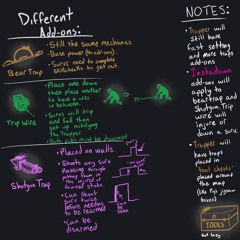 Different
Add-ons:
- Still the same mechanics.
- Base power (no add-on)
- Survs need to complete
skillchecks to get out.
Bear Trap
- Place one down
then place another
to have a wire
in between.
- Survs will trip
and fall then
get up notifying
the Trapper
- Both sides must be disarmed
Trip Wire
- Placed on walls.
- Shoots any surv
passing through
putting them in
the injured or
downed state.
- Can shoot
surv twice
before needing
to be rearmed
- Can be
disarmed
Shotgun Trap
to
be seen
NOTES:
- Trapper will
still have
fast setting
and more traps
add-ons
- Instadown
add-ons will
apply to
beartrap and
Shotgun. Trip
wire will
injure or
down a surv.
- Trapper will
have to get
placed in
"tool chests"
placed around
the map
(like pig jigsaw
boxes)
TOOLS